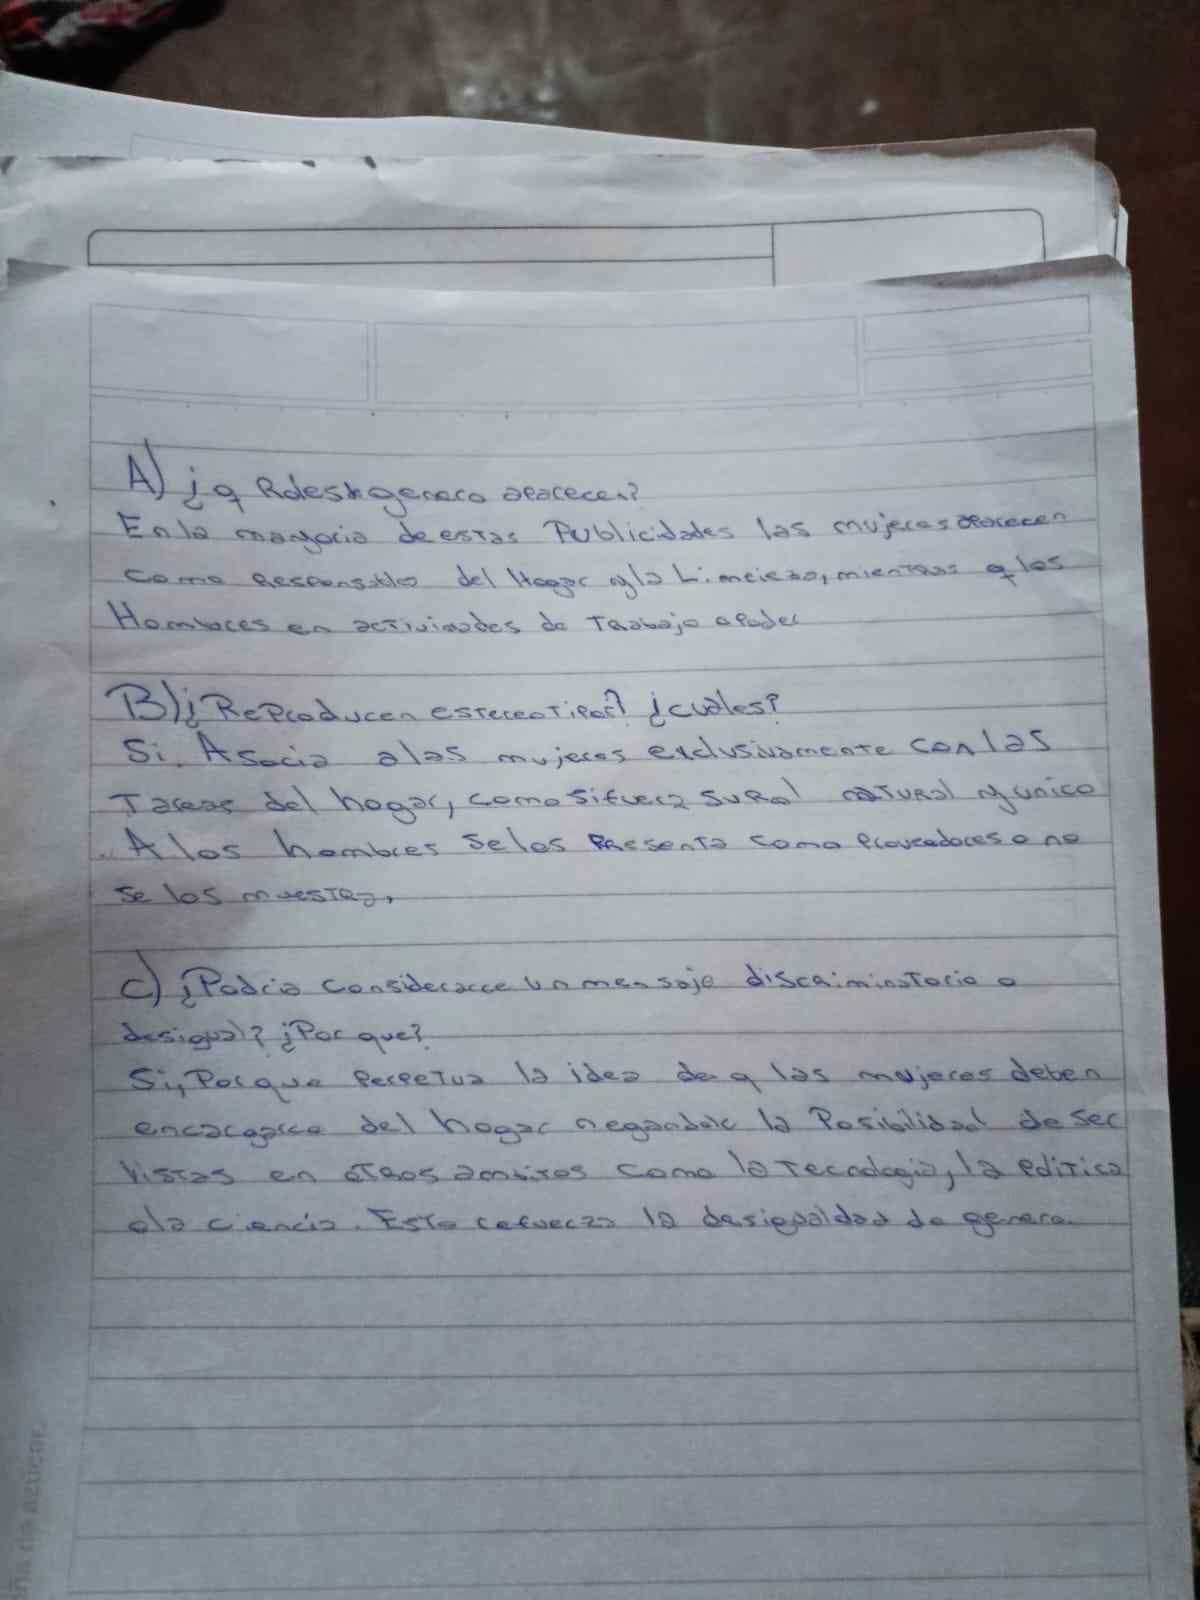 A) ¿q Roles de genero aparecen?
En la mayoria de estas Publicidades las mujeres aparecen
como Responsables del Hogar y la Limpieza, mientras q los
Hombres en actividades de Trabajo o Poder
B) ¿Reproducen estereotipos? ¿cuales?
Si. Asocia a las mujeres exclusivamente con las
Tareas del hogar, como si fuera su rol natural y unico
A los hombres se los Presenta como Proveedores o no
se los muestra.
C) ¿Podria considerarce un mensaje discriminatorio o
desigual? ¿Por que?
Si, Porque Perpetua la idea de q las mujeres deben
encargarce del hogar negandole la Posibilidad de ser
vistas en otros ambitos como la Tecnologia, la politica
o la ciencia. Esto refuerza la desigualdad de genero.
ña de azúcar.